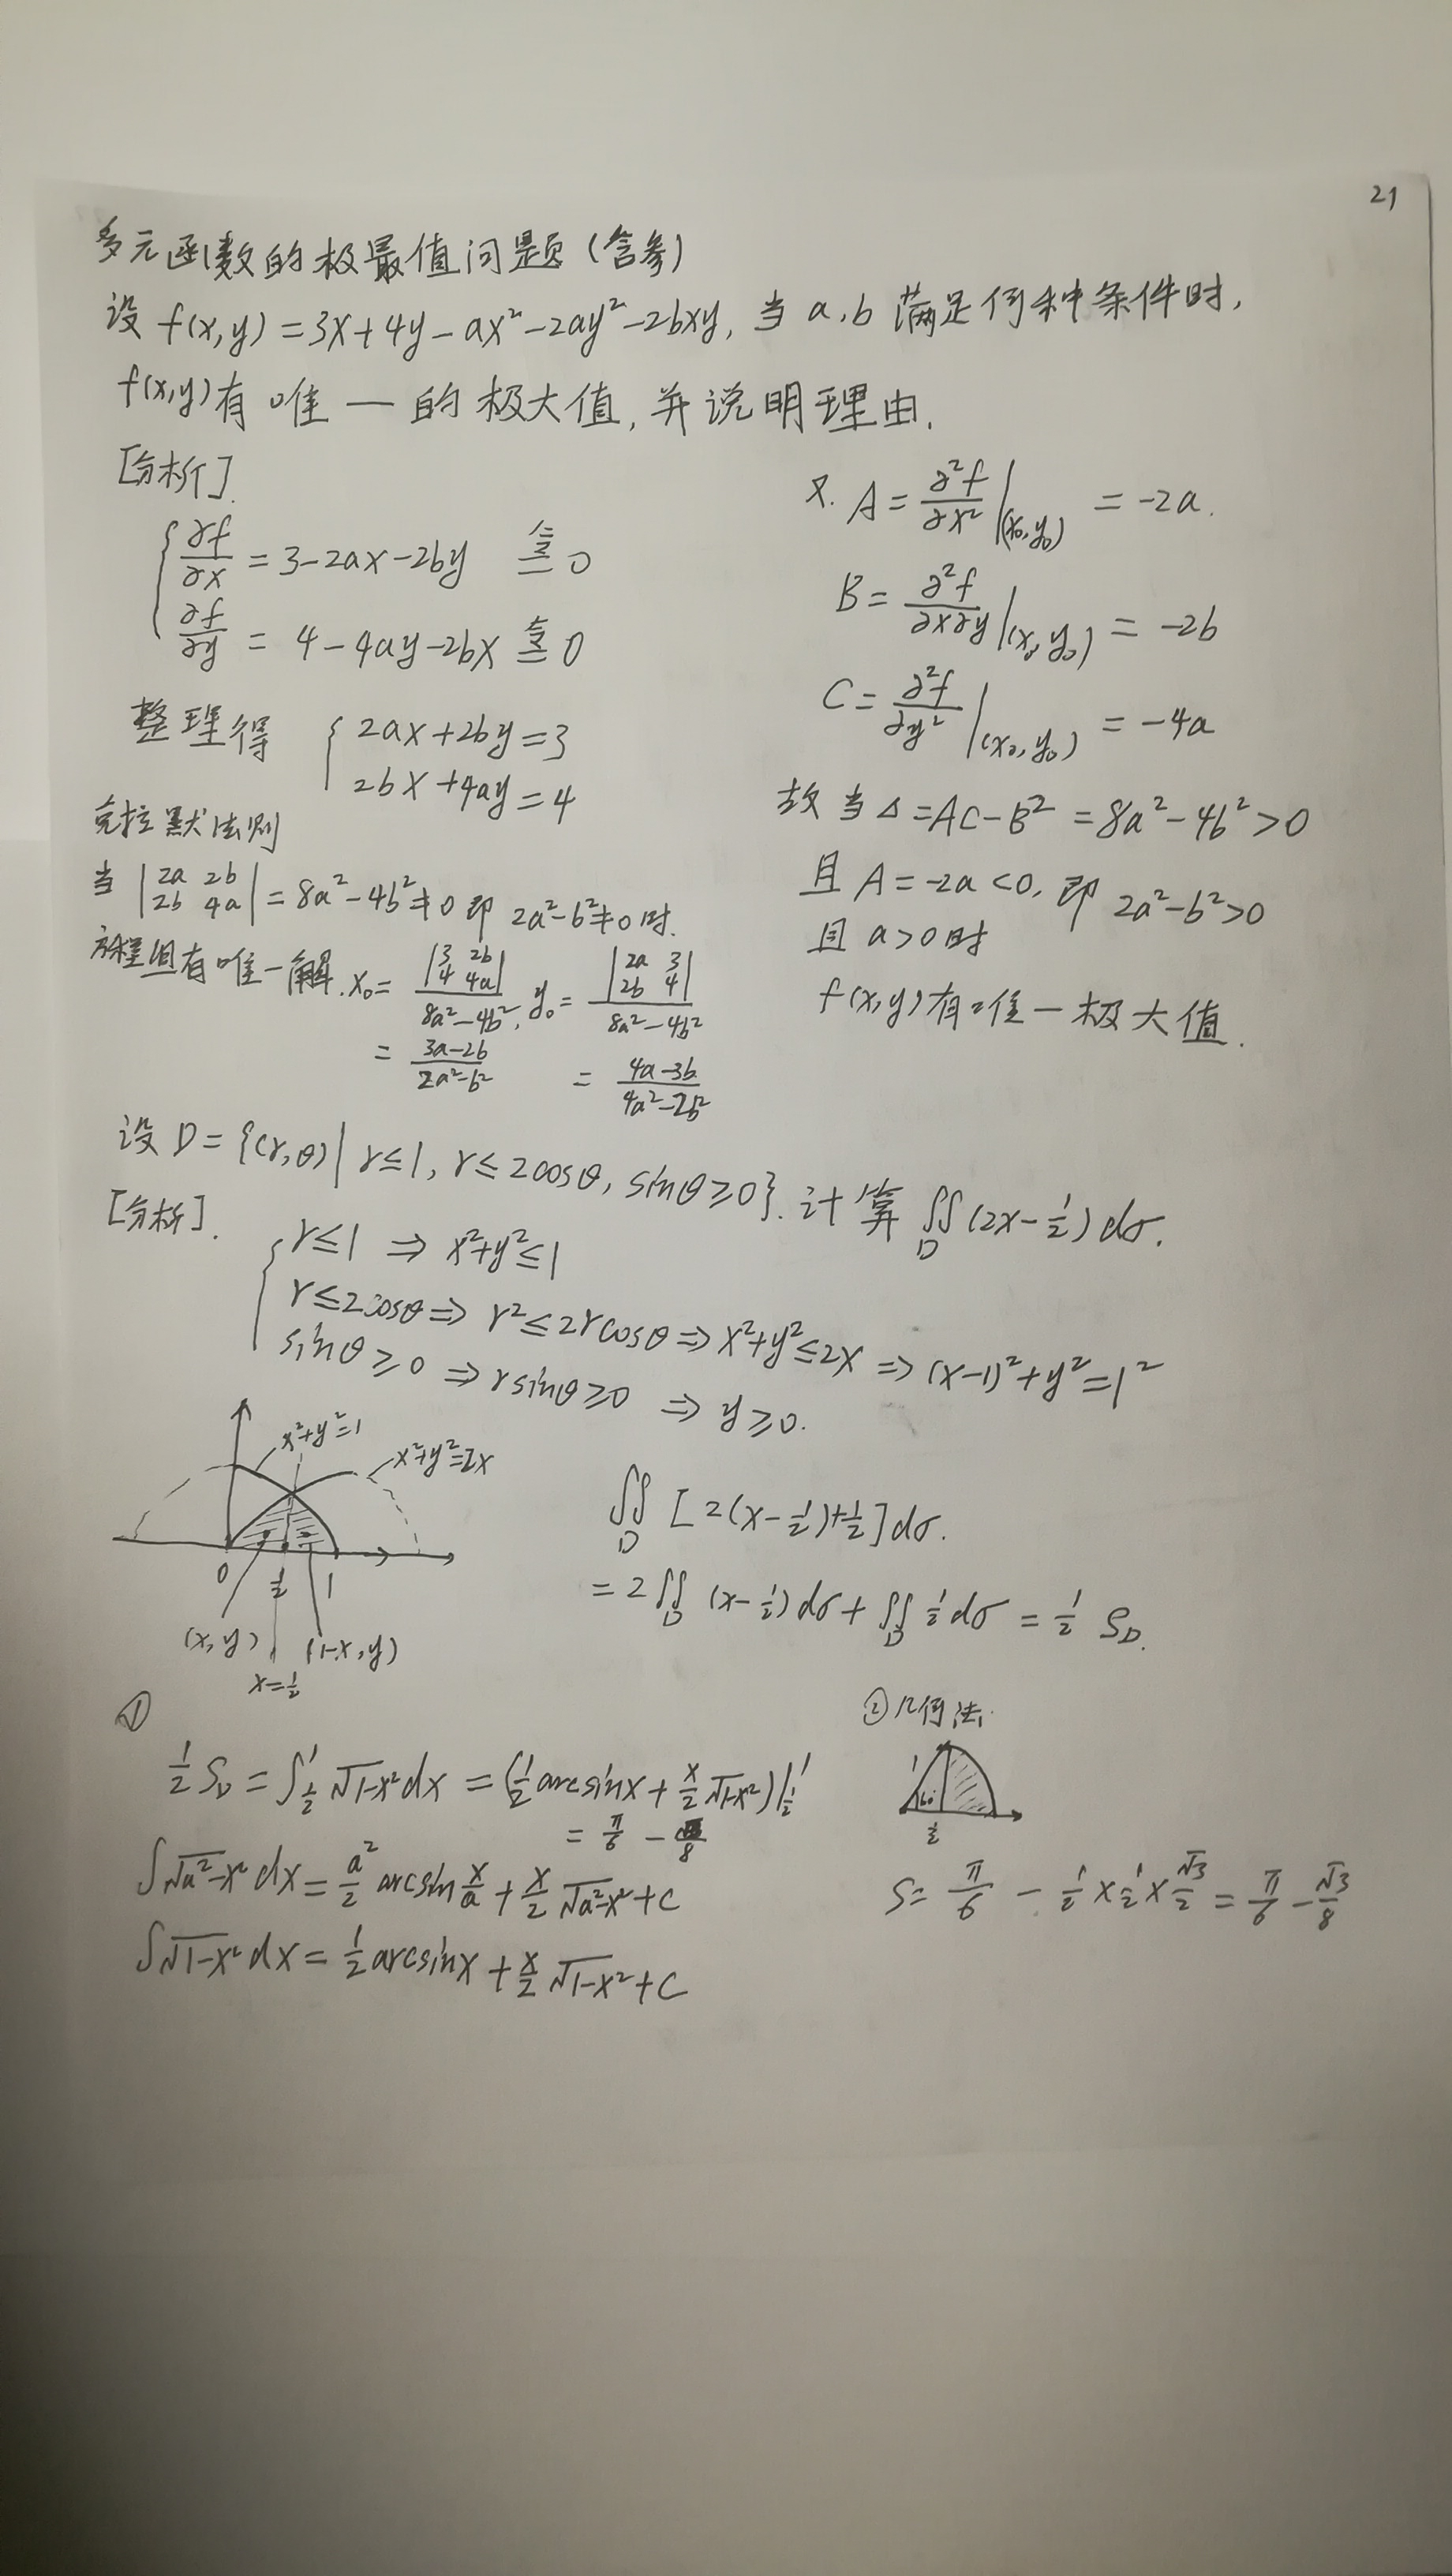 21
多元函数的极最值问题(含参)
设 f(x,y)=3x+4y-ax²-2ay²-2bxy, 当 a,b 满足何种条件时,
f(x,y)有唯一的极大值,并说明理由.
[分析].
{ ∂f/∂x = 3-2ax-2by 令= 0
∂f/∂y = 4-4ay-2bx 令= 0
整理得 { 2ax+2by=3
2bx+4ay=4
克拉默法则
当 |2a 2b; 2b 4a| = 8a²-4b²≠0 即 2a²-b²≠0时.
方程组有唯一解. x₀= |3 2b; 4 4a| / (8a²-4b²), y₀= |2a 3; 2b 4| / (8a²-4b²)
= (3a-2b)/(2a²-b²) = (4a-3b)/(4a²-2b²)
又. A= ∂²f/∂x² |(x₀,y₀) = -2a.
B= ∂²f/∂x∂y |(x₀,y₀) = -2b
C= ∂²f/∂y² |(x₀,y₀) = -4a
故当 Δ=AC-B²=8a²-4b²>0
且 A=-2a<0, 即 2a²-b²>0
且 a>0时
f(x,y)有唯一极大值.
设 D={(r,θ)| r≤1, r≤2cosθ, sinθ≥0}. 计算 ∬_D (2x-1/2)dσ.
[分析].
{ r≤1 ⇒ x²+y²≤1
r≤2cosθ ⇒ r²≤2rcosθ ⇒ x²+y²≤2x ⇒ (x-1)²+y²=1²
sinθ≥0 ⇒ rsinθ≥0 ⇒ y≥0.
x²+y²=1
x²+y²=2x
0 1/2 1
(x,y) (1-x,y)
x=1/2
∬_D [2(x-1/2)+1/2]dσ.
=2∬_D (x-1/2)dσ+∬_D 1/2 dσ = 1/2 S_D.
①
1/2 S_D = ∫_{1/2}^1 √(1-x²)dx = (1/2 arcsinx + x/2 √(1-x²))|_{1/2}^1
= π/6 - √3/8
∫√(a²-x²)dx = a²/2 arcsin x/a + x/2 √(a²-x²)+C
∫√(1-x²)dx = 1/2 arcsinx + x/2 √(1-x²)+C
②几何法.
1
60°
1/2
S= π/6 - 1/2×1/2×√3/2 = π/6 - √3/8